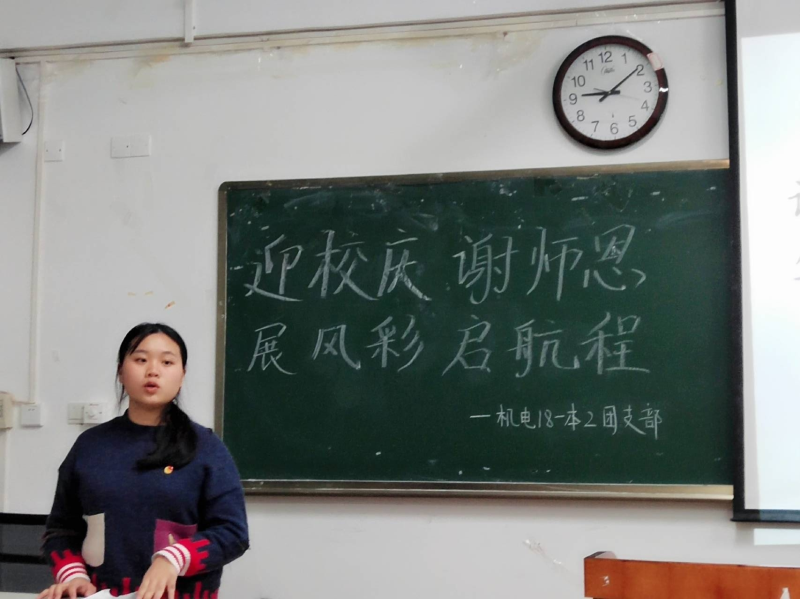 12
1
2
3
4
5
6
7
8
9
10
11
迎校庆 谢师恩
展风彩 启航程
一机电18-本2团支部